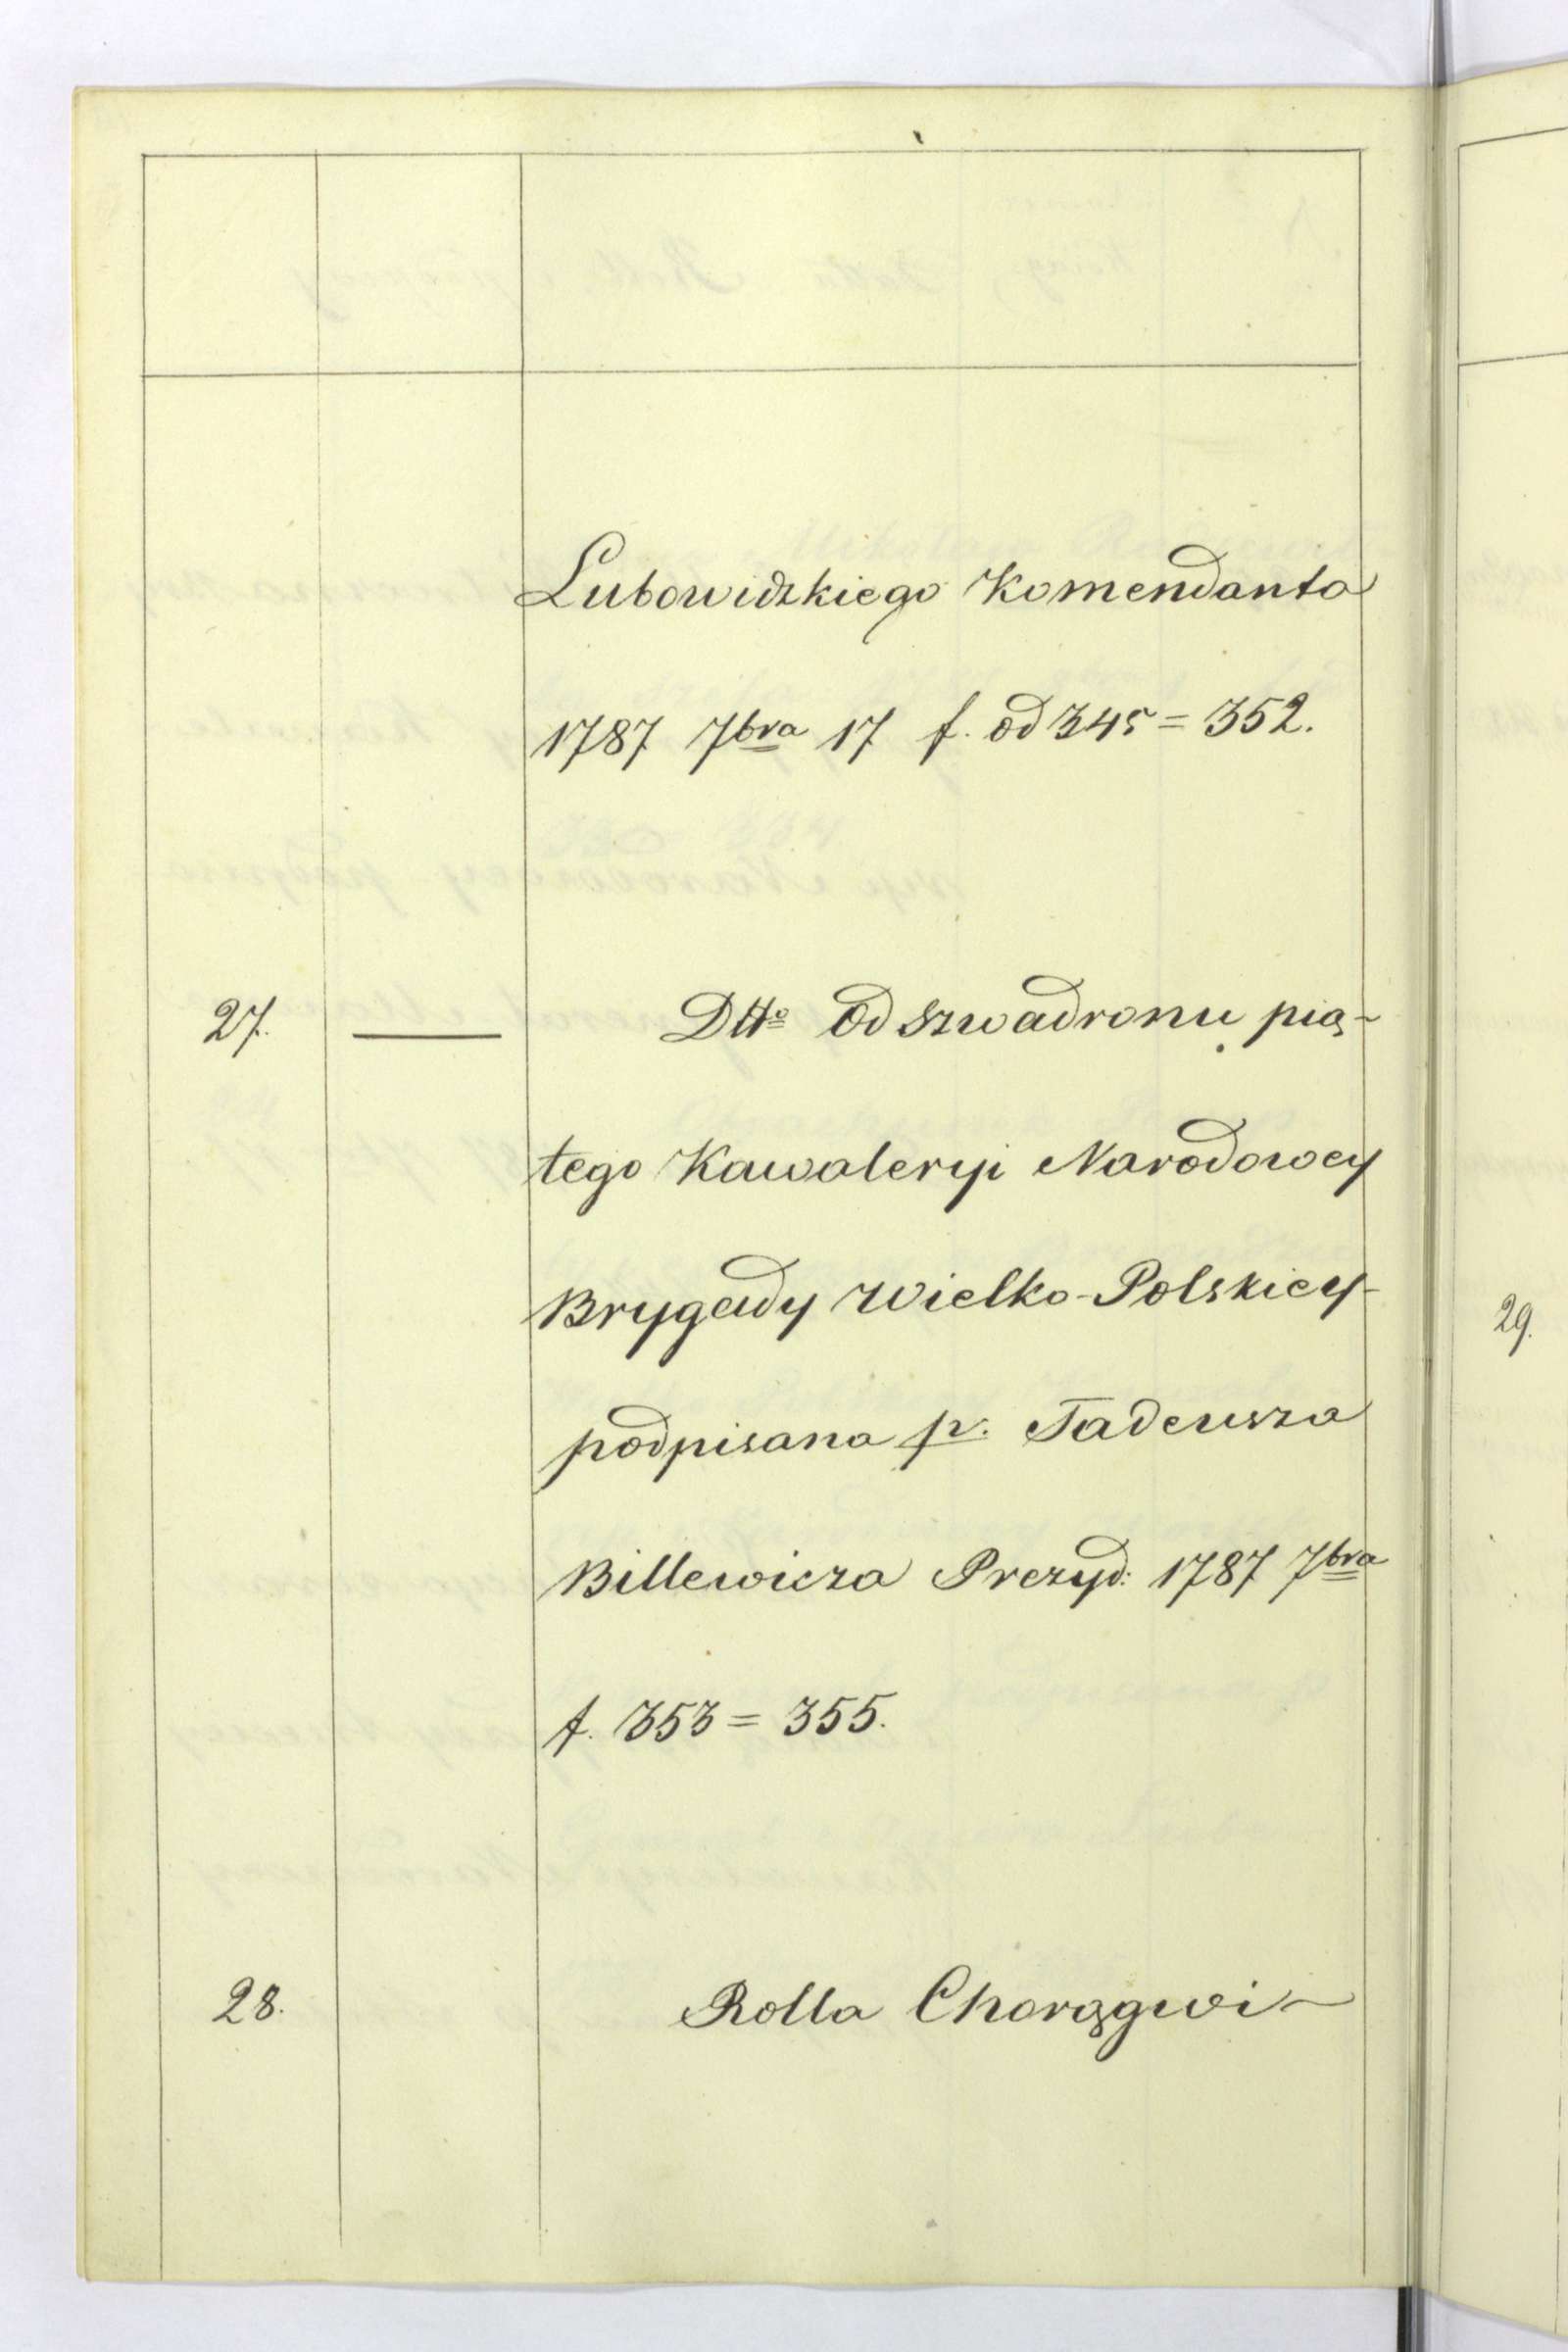 Lubowidzkiego Komendanta
1787 7bra 17 f. od 345 = 352.
27. — Dtto Od szwadronu pią-
tego Kawaleryi Narodowey
Brygady Wielko-Polskiey-
podpisana p. Tadeusza
Billewicza Prezyd: 1787 7bra
f. 353 = 355.
28. Rolla Chorągwi -
29.